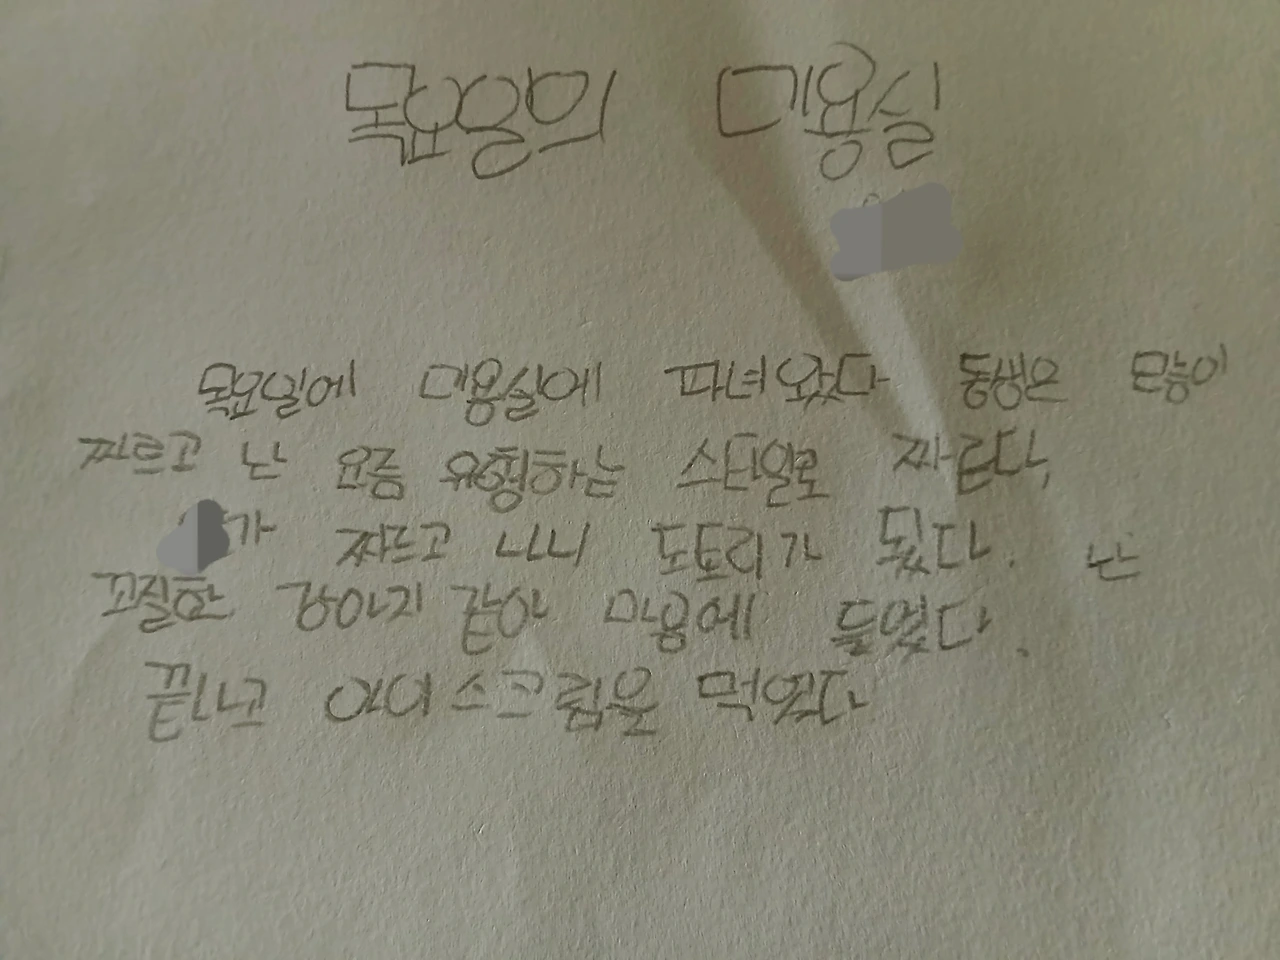 목요일의 미용실
목요일에 미용실에 파녀왔다 동생은 많이
찌르고 난 요즘 유형하는 스타일로 짜랐다,
가 짜르고 나니 도토리가 됬다. 난
꼬질한 강아지 같아 마음에 들었다.
끝나고 아이스크림을 먹었다